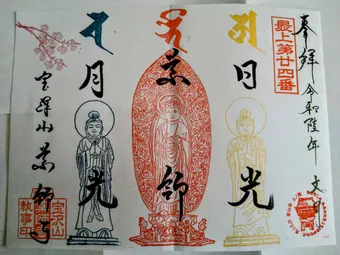 奉拝 令和陸年 文月
最上第廿四番
日光
薬師
月光
宝沢山 薬師寺
宝沢山
執事印